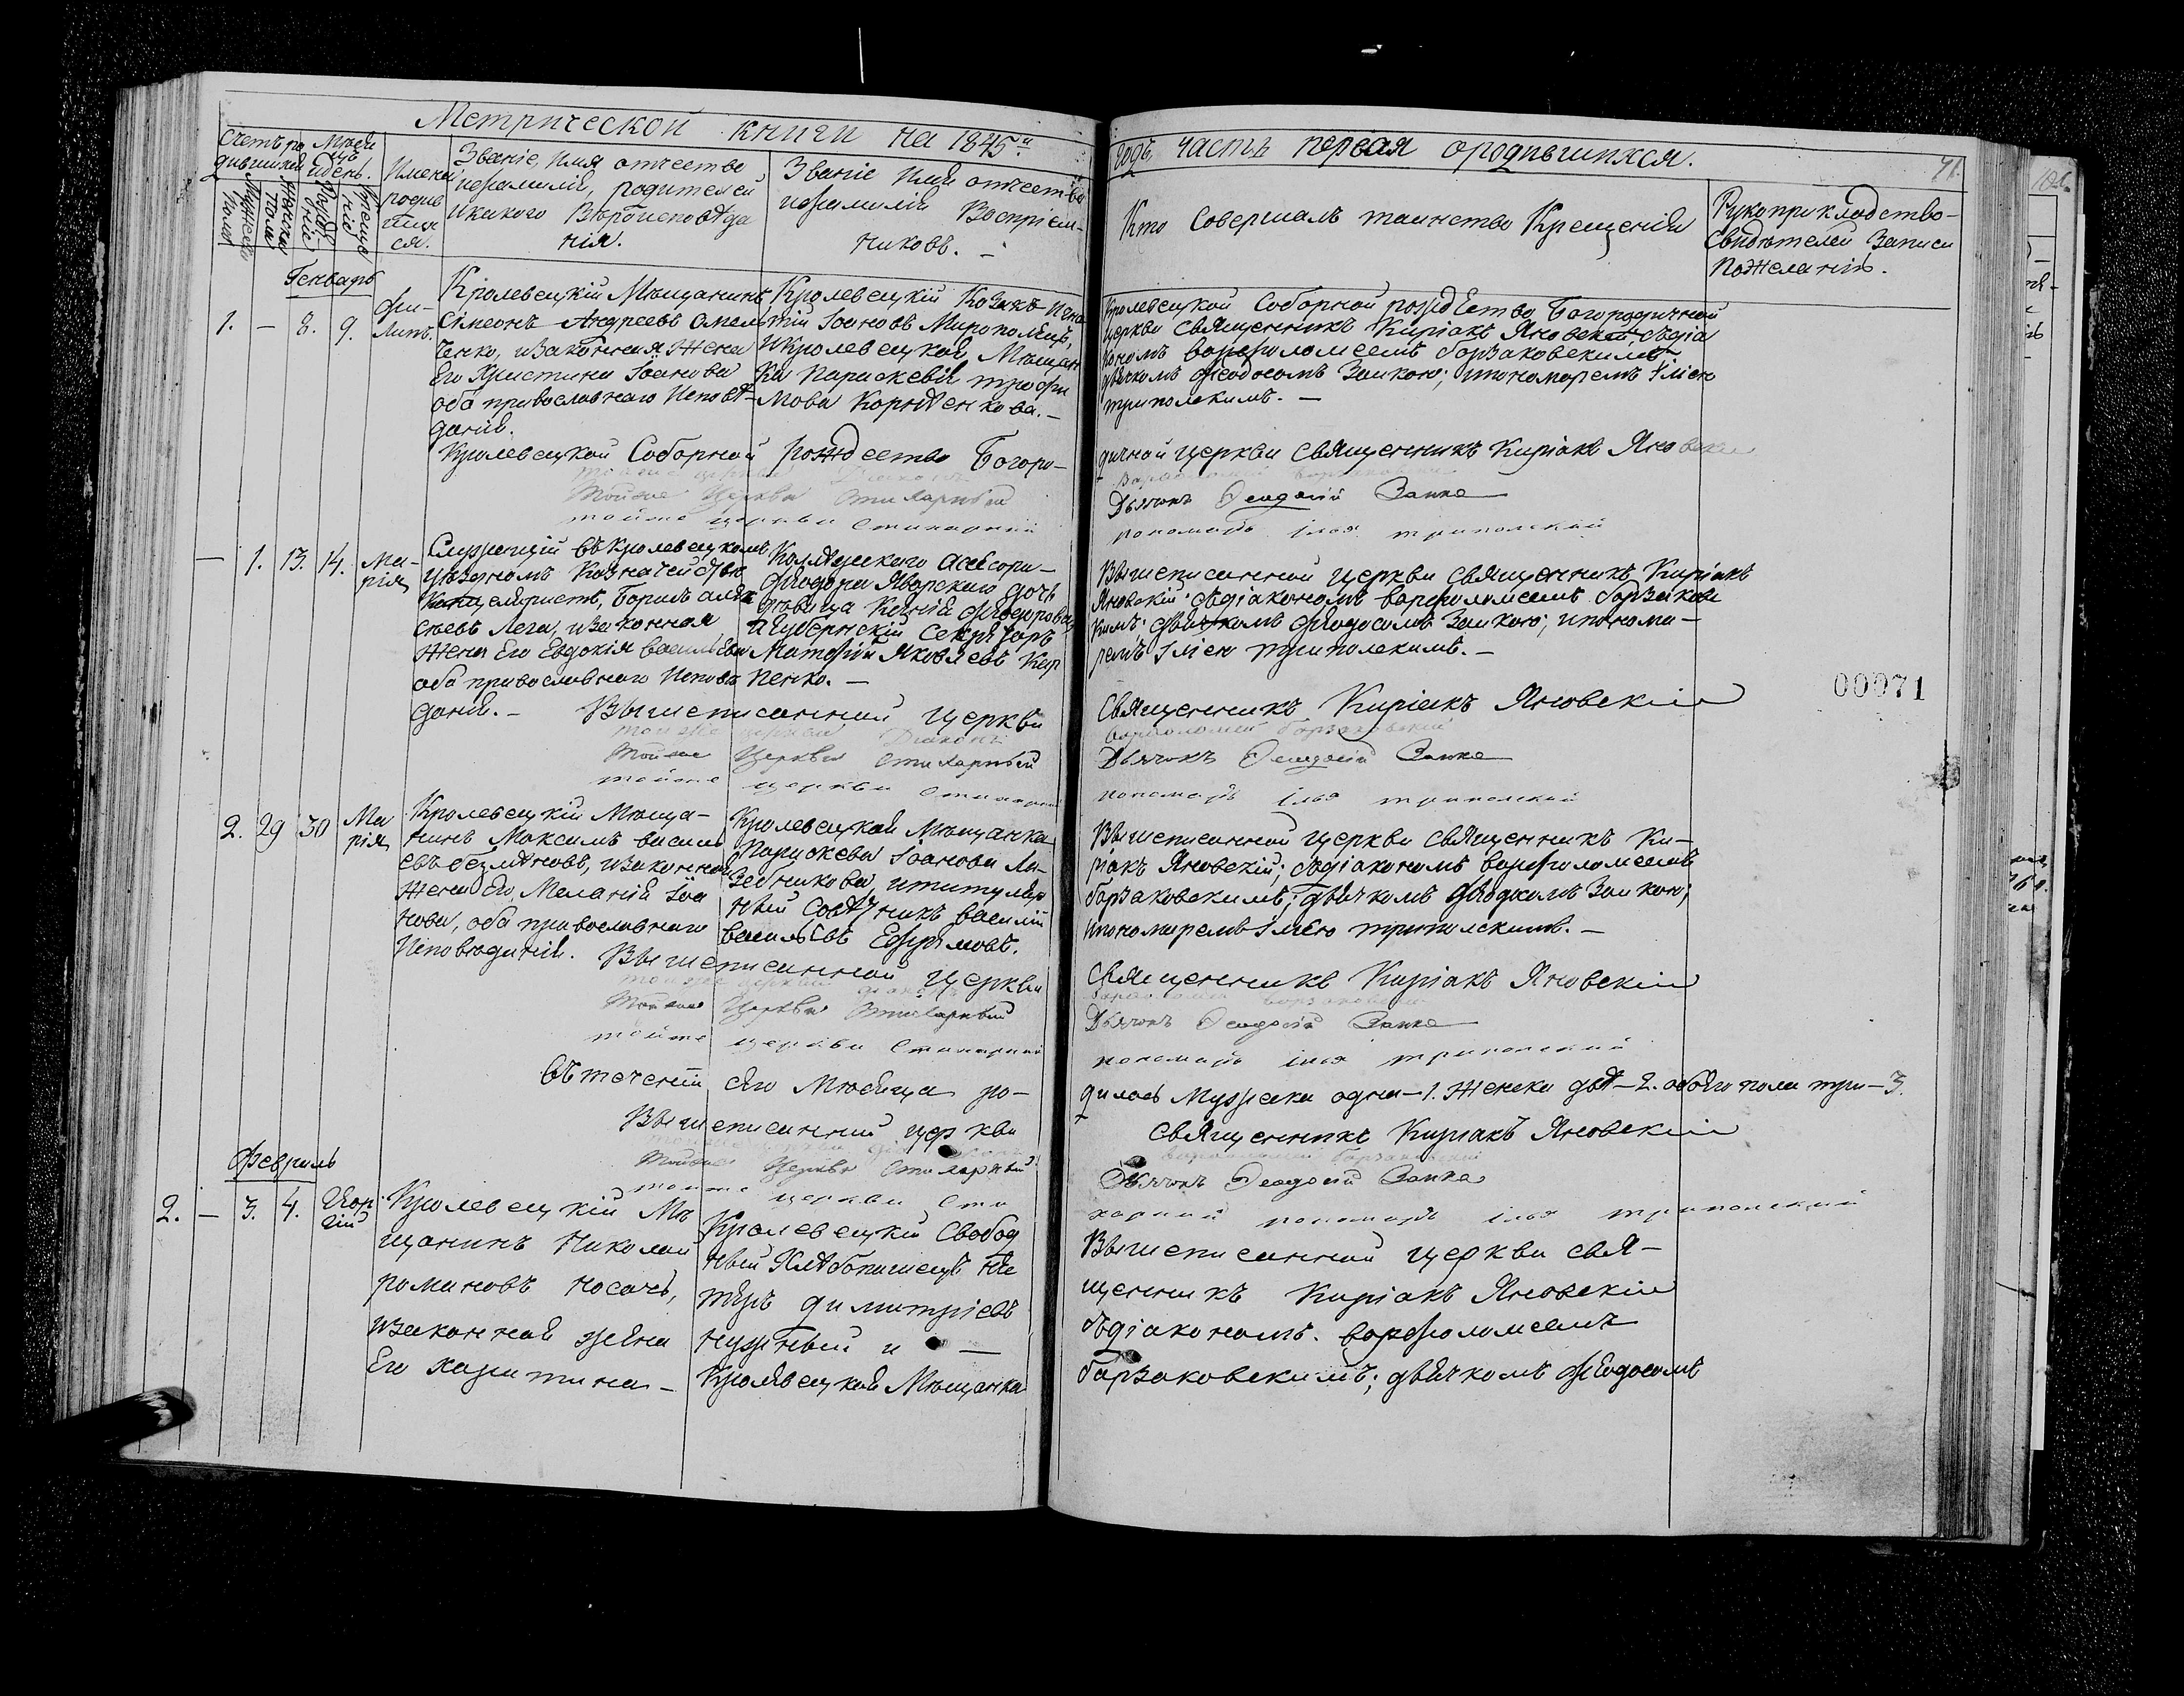 Метрической книги на 1845й
годъ часть первая ородившихся.
71
Счетъ ро
дившихся
Мѣся
цъ
и день.
Мужеска
пола
Женска
пола
Рожде
ніе
Креще
ніе
Имена
родив
шихся.
Званіе, имя отчество
ифамилія, родителей
икакого Вѣроисповѣда
нія.
Званіе Имя отчество
ифамилія Воспріем-
никовъ. –
Кто Совершалъ таинство Крещенія
Рукоприкладство-
Свидѣтелей Записи
Пожеланію.
Генварь
1. – 8. 9. Фи-
липъ.
Кролевецкій Мѣщанинъ
Сімеонъ Андреевъ Омель
ченко, изаконная Жена
Его Христина Іоанова
оба православнаго Исповѣ-
данія.
Кролевецкій Козакъ Игна
тій Іоановъ Миропольцъ,
икролевецкая Мѣщан
ка Параскевія трофи
мова Корнѣенкова. –
Кролевецкой Соборной рождество Богородичной
церкви Священникъ Киріакъ Яновскій, сдіа
кономъ варфоломеемъ борзаковскимъ,
дьячкомъ феодосомъ Заикою; ипономаремъ Іліею
триполскимъ. –
Кролевецкой Соборной рождество Богоро-
дичной церкви Священникъ Киріакъ Яновски
Тойже Церкви Діаконъ
Тойже Церкви Стихарный
Дьячокъ Феодосій Заика
тойже церкви Стихарний
пономарь ілья триполский
– 1. 13. 14. Ма-
рія
Служащій въ Кролевецкомъ
Уѣздномъ Казначействѣ
Канцеляристъ, Борисъ алек
сѣевъ Лега, изаконная
Жена Его Евдокія васильева
оба православнаго Исповѣ
данія. –
Колежского Асесора-
Феодора Яворскаго дочь
дѣвица Ксенія Феодорова
и губернскій Секретарь
Матфій Яковлевъ Кар
пенко. –
Вышеписанной церкви священникъ Киріакъ
Яновскій; сдіакономъ варфоломеемъ борзаковс
кимъ; дьячкомъ феодосомъ Заикою; ипонома-
ремъ Іліею триполскимъ. –
Вышеписанной церкви
Священникъ Киріакъ Яновскій
тойже церкви Діаконъ
варфоломей борзаковский
Тойже Церкви Стихарный
Дьячокъ Феодосій Заика
тойже церкви Стихарний
пономарь ілья триполский
00071
2. 29 30 Ма
рія
Кролевецкій Мѣща-
нинъ Максимъ василь
евъ безляновъ, изаконная
жена Его, Меланія Іоа
нова, оба православнаго
Исповѣданія.
Кролевецкая Мѣщанка
Параскева Іоанова Ла-
зебникова, ититуляр
ный Совѣтникъ василій
васильевъ Ефремовъ.
Вышеписанной церкви священникъ Ки-
ріакъ Яновскій; сдіакономъ варфоломеемъ
борзаковскимъ; дьячкомъ феодосомъ Заикою;
ипономаремъ Іліею триполскимъ. –
Вышеписанной церкви
Священникъ Киріакъ Яновскій
тойже церкви діаконъ
Тойже Церкви Стихарный
Дьячокъ Феодосій Заика
тойже церкви Стихарний
пономарь ілья триполский
Втеченіи сего Мѣсяца ро-
дилось Мужска одна – 1. Женска двѣ – 2. обоего пола три – 3.
Вышеписанной церкви
Священникъ Киріакъ Яновскій
варфоломей борзаковский
Тойже Церкви Стихарный
Дьячокъ Феодосій Заика
тойже церкви Сти
харний пономарь ілья триполский
Февраль
2. – 3. 4. Геор
гій
Кролевецкій Мѣ
щанинъ Николай
романовъ Носачь,
изаконная жена
Его харитина –
Кролевецкій Свобод
ный Хлѣбопашецъ Пе
тръ димитріевъ
нужный и –
Кролевецкая Мѣщанка
Вышеписанной церкви свя-
щенникъ Киріакъ Яновскій
сдіакономъ варфоломеемъ
борзаковскимъ; дьячкомъ феодосомъ